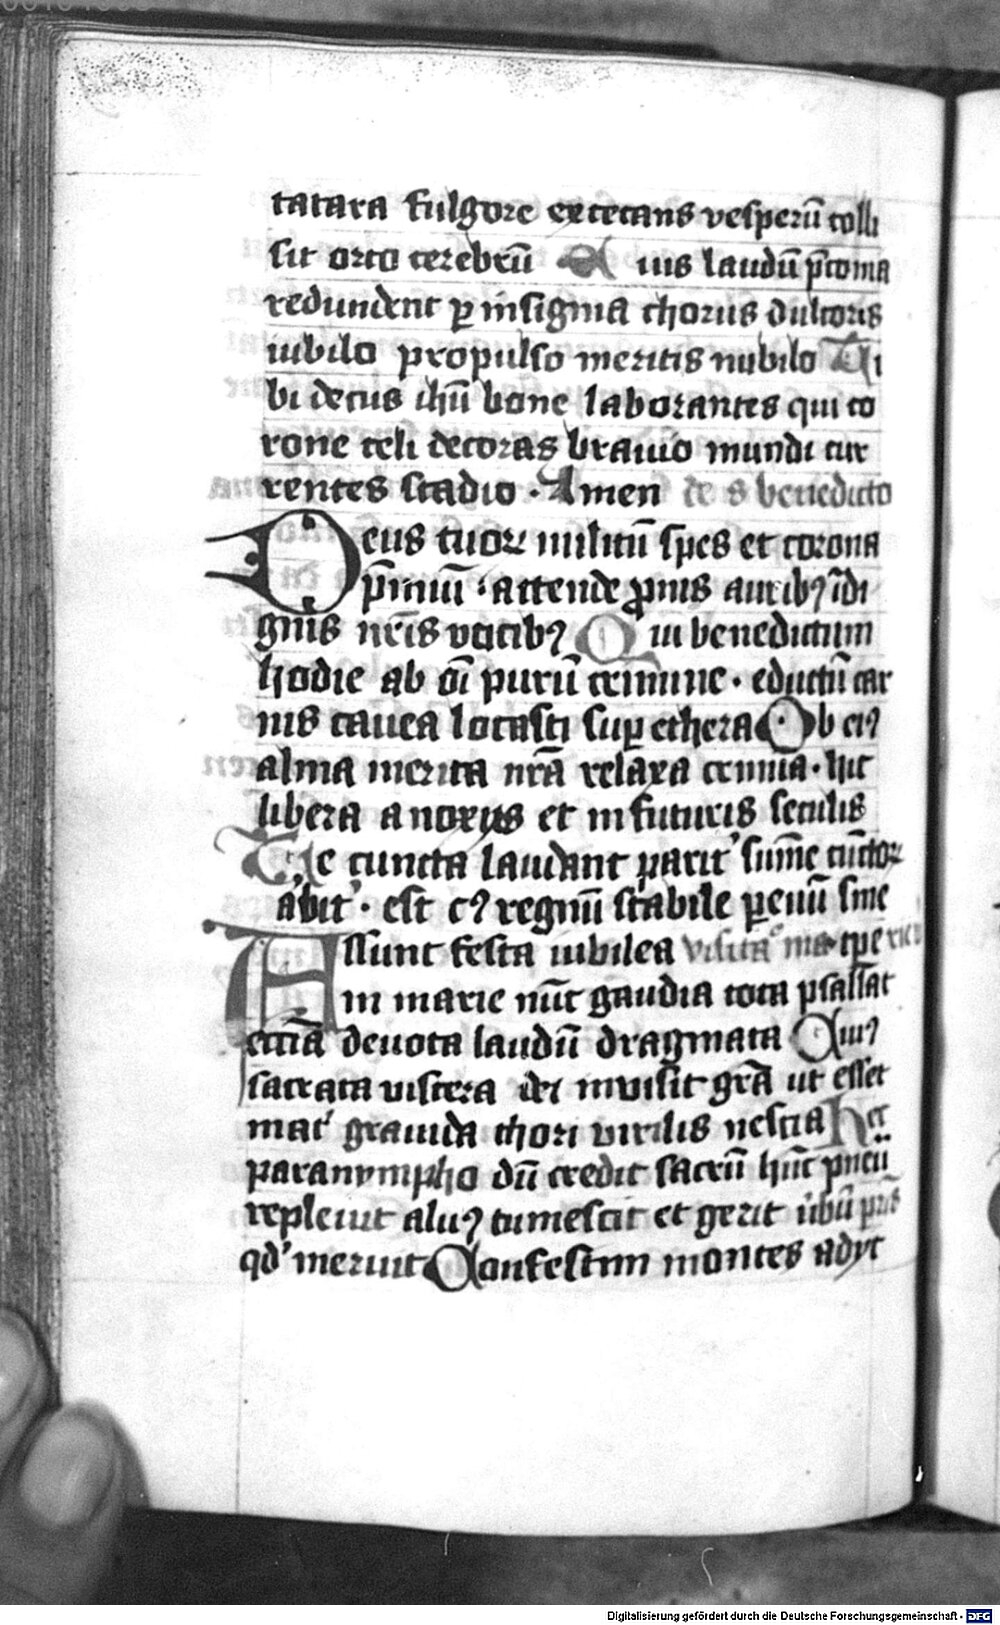 tatara fulgore excecans vesperū colli
sit orto cerebrū Cuius laudū p̄coma
redundent ꝑ insignia chorus dulcoris
iubilo propulso meritis nubilo Ti
bi decus ihū bone laborantes qui co
rone celi decoras brauio mundi cur
rentes stadio · Amen de s benedicto
Deus tuoꝝ militū spes et corona
p̄miū : attende ꝓnis auribꝫ īdi
gnis nr̄is vocibꝫ Qui benedictum
hodie ab oī purū crimine · eductū car
nis cauea locasti suꝑ ethera Ob eiꝰ
alma merita nr̄a relaxa crimīa · hic
libera a noxijs et in futuris seculis
Te cuncta laudant parit' sum̄e cūctoꝝ
arbit' · est cꝰ regnū stabile ꝑ euū sine
Assunt festa iubilea visita° ma
In marie nūc gaudia tota psallat
eccīa deuota laudū dragmata Cuiꝰ
sacrata viscera dei inuisit grā ut esset
mat' grauida thori virilis nescia Hec
paranympho dū credit sacrū hūc pneū
repleuit aluꝰ tumescit et gerit v̓bū pr̄is
qd' meruit Confestim montes adyt
Digitalisierung gefördert durch die Deutsche Forschungsgemeinschaft - DFG